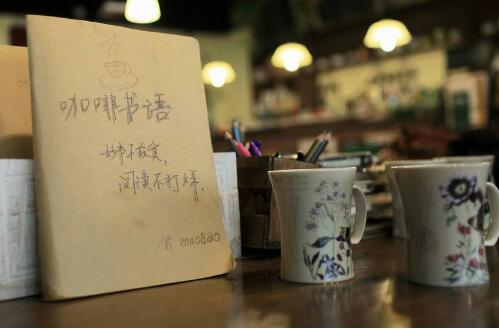 咖啡书语
不寂寞,
阅读不打烊.
20110820